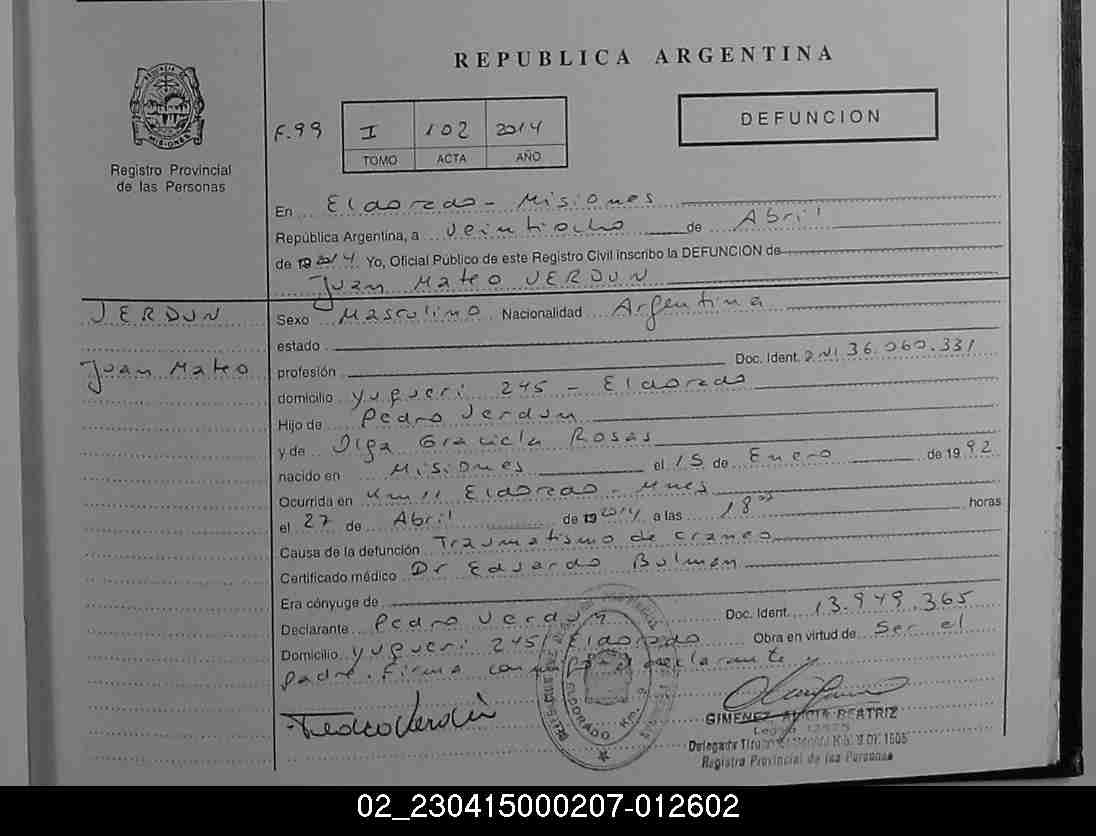 REPUBLICA ARGENTINA
MISIONES
Registro Provincial
de las Personas
F.99 I 102 2014
TOMO ACTA AÑO
DEFUNCION
En Eldorado - Misiones
República Argentina, a veintiocho de Abril
de 19 2014 Yo, Oficial Público de este Registro Civil inscribo la DEFUNCION de
Juan Mateo VERDUN
VERDUN
Juan Mateo
Sexo Masculino Nacionalidad Argentina
estado
profesión Doc. Ident. DNI 36.060.331
domicilio Yuqueri 245 - Eldorado
Hijo de Pedro Verdun
y de Olga Graciela Rosas
nacido en Misiones el 15 de Enero de 1992
Ocurrida en Km 11 Eldorado - Mnes
el 27 de Abril de 19 2014 a las 18 horas
Causa de la defunción Traumatismo de craneo
Certificado médico Dr Eduardo Bulman
Era cónyuge de
Declarante Pedro Verdun Doc. Ident. 13.949.365
Domicilio Yuqueri 245 Eldorado Obra en virtud de Ser el
padre. Firma el declarante
Pedro Verdún
ELDORADO Km. 9
GIMENEZ ALICIA BEATRIZ
Delegada Of. 1505
Registro Provincial de las Personas
02_230415000207-012602